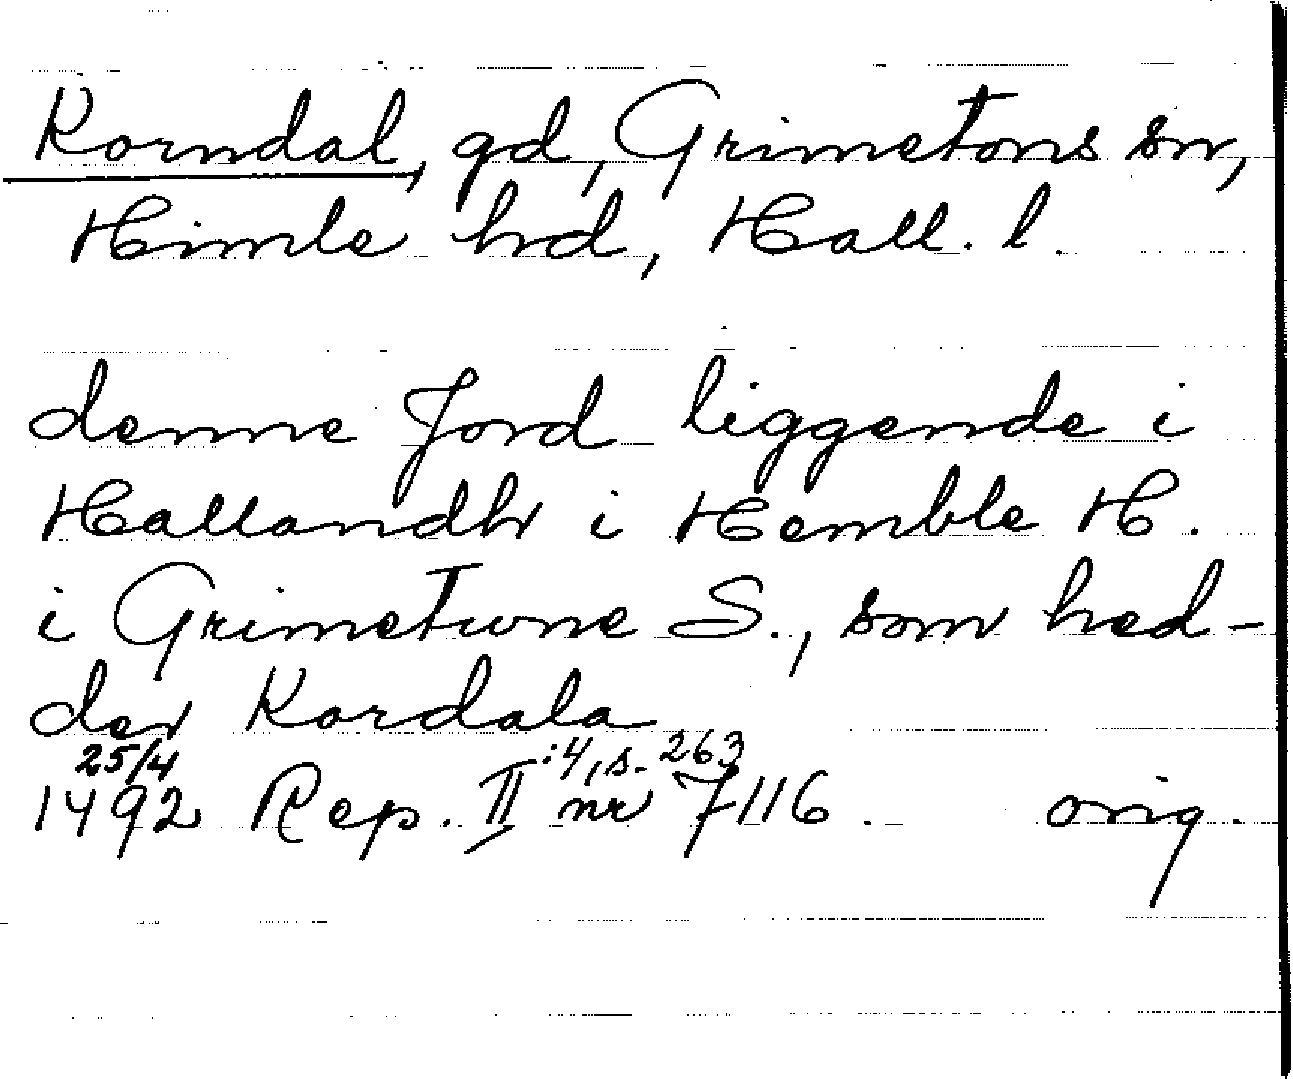 Korndal, gd, Grimetons sn,
Himle hd, Hall. l.
denne Jord liggende i
Hallandh i Hemble H.
i Grimetune S., som hed-
der Kordala
25/4 :4, s. 263
1492 Rep. II nr 7116. orig.